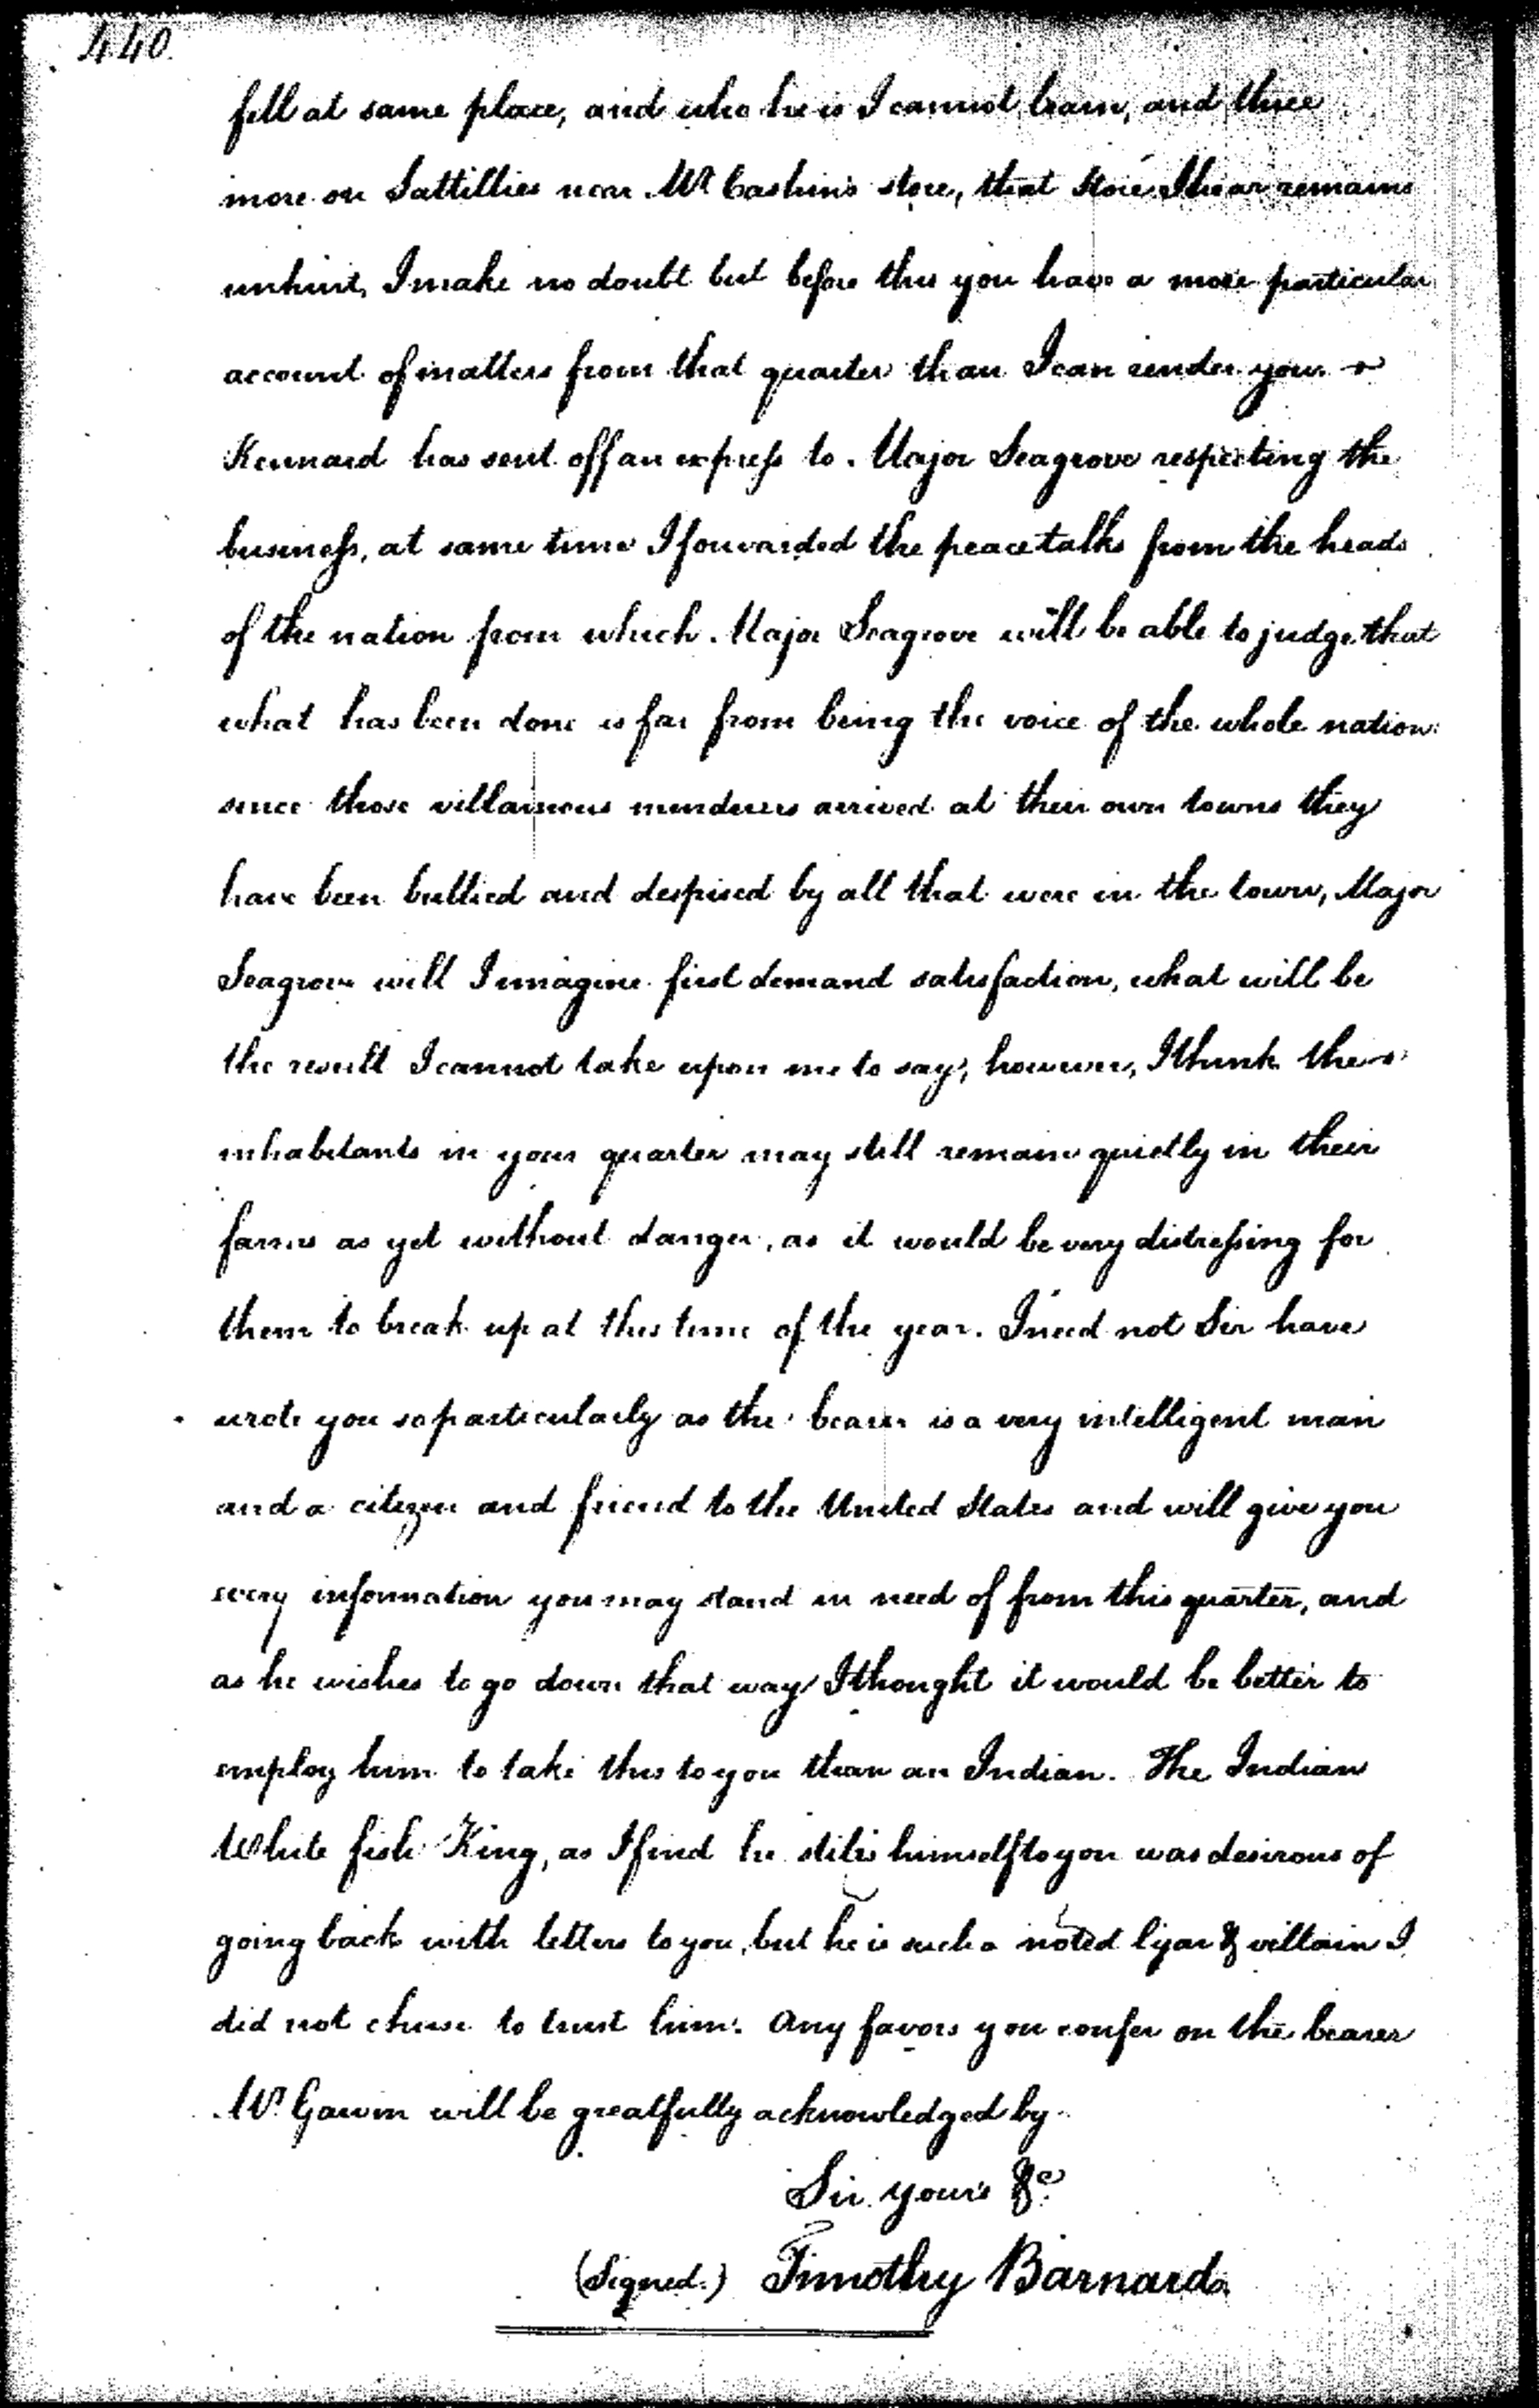 440.
fell at same place, and who he is I cannot learn, and three
more on Sattillies near Mr Cashins store, that store I hear remains
unhurt, I make no doubt but before this you have a more particular
account of matters from that quarter than I can render you
Kennard has sent off an express to Major Seagrove respecting the
business, at same time I forwarded the peace talks from the heads
of the nation from which Major Seagrove will be able to judge that
what has been done is far from being the voice of the whole nation
since those villainous murderers arrived at their own towns they
have been bullied and despised by all that were in the town, Major
Seagrove will I imagine first demand satisfaction, what will be
the result I cannot take upon me to say, however, I think the
inhabitants in your quarter may still remain quietly in their
farms as yet without danger, as it would be very distressing for
them to break up at this time of the year. I need not Sir have
wrote you so particularly as the bearer is a very intelligent man
and a citizen and friend to the United States and will give you
every information you may stand in need of from this quarter, and
as he wishes to go down that way I thought it would be better to
employ him to take this to you than an Indian. The Indian
White fish King, as I find he stiles himself to you was desirous of
going back with letters to you, but he is such a noted lyar & villain I
did not chuse to trust him. Any favors you confer on the bearer
Mr. Gawin will be greatfully acknowledged by
Sir yours &c.
(Signed.) Timothy Barnard